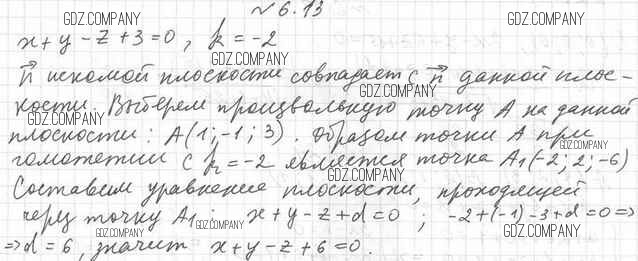 №6.13
GDZ.COMPANY
x+y-z+3=0, k=-2
GDZ.COMPANY
GDZ.COMPANY
n искомой плоскости совпадает с n данной плос-
GDZ.COMPANY
кости. Выберем произвольную точку А на данной
GDZ.COMPANY
плоскости: А(1;-1;3). Образом точки А при
GDZ.COMPANY
гомотетии с k=-2 является точка А₁(-2;2;-6)
GDZ.COMPANY
Составим уравнение плоскости, проходящей
через точку А₁: x+y-z+d=0; -2+(-1)-3+d=0=>
GDZ.COMPANY
GDZ.COMPANY
=>d=6, значит x+y-z+6=0.
GDZ.COMPANY